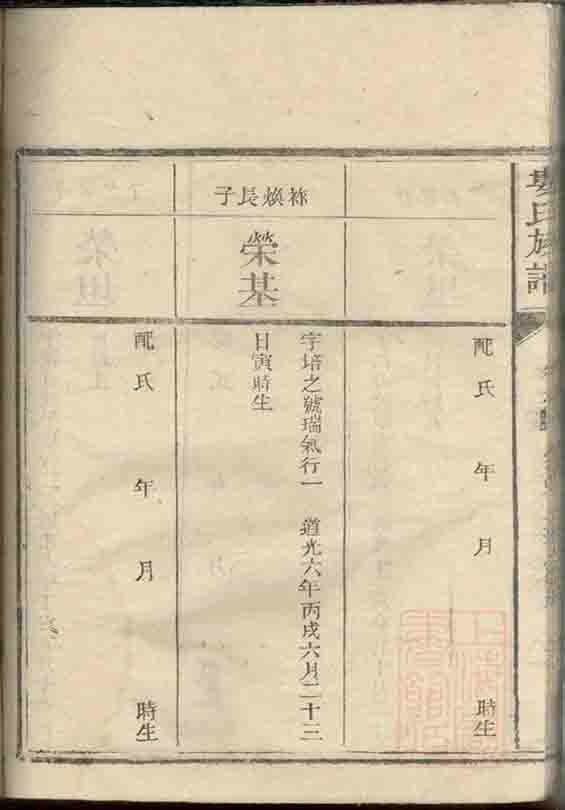 氏族譜
配氏 年 月 時生
祢煥長子
榮基
字培之號瑞氣行一 道光六年丙戌六月二十三
日寅時生
配氏 年 月 時生